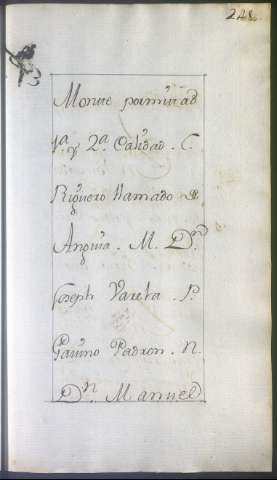 248.
Monte pormitad
1ª y 2ª Calidad. C.
Riguero llamado
Anguia. M. Dⁿ
Joseph Varela. P.
Gavino Padron. N.
Dⁿ. Manuel